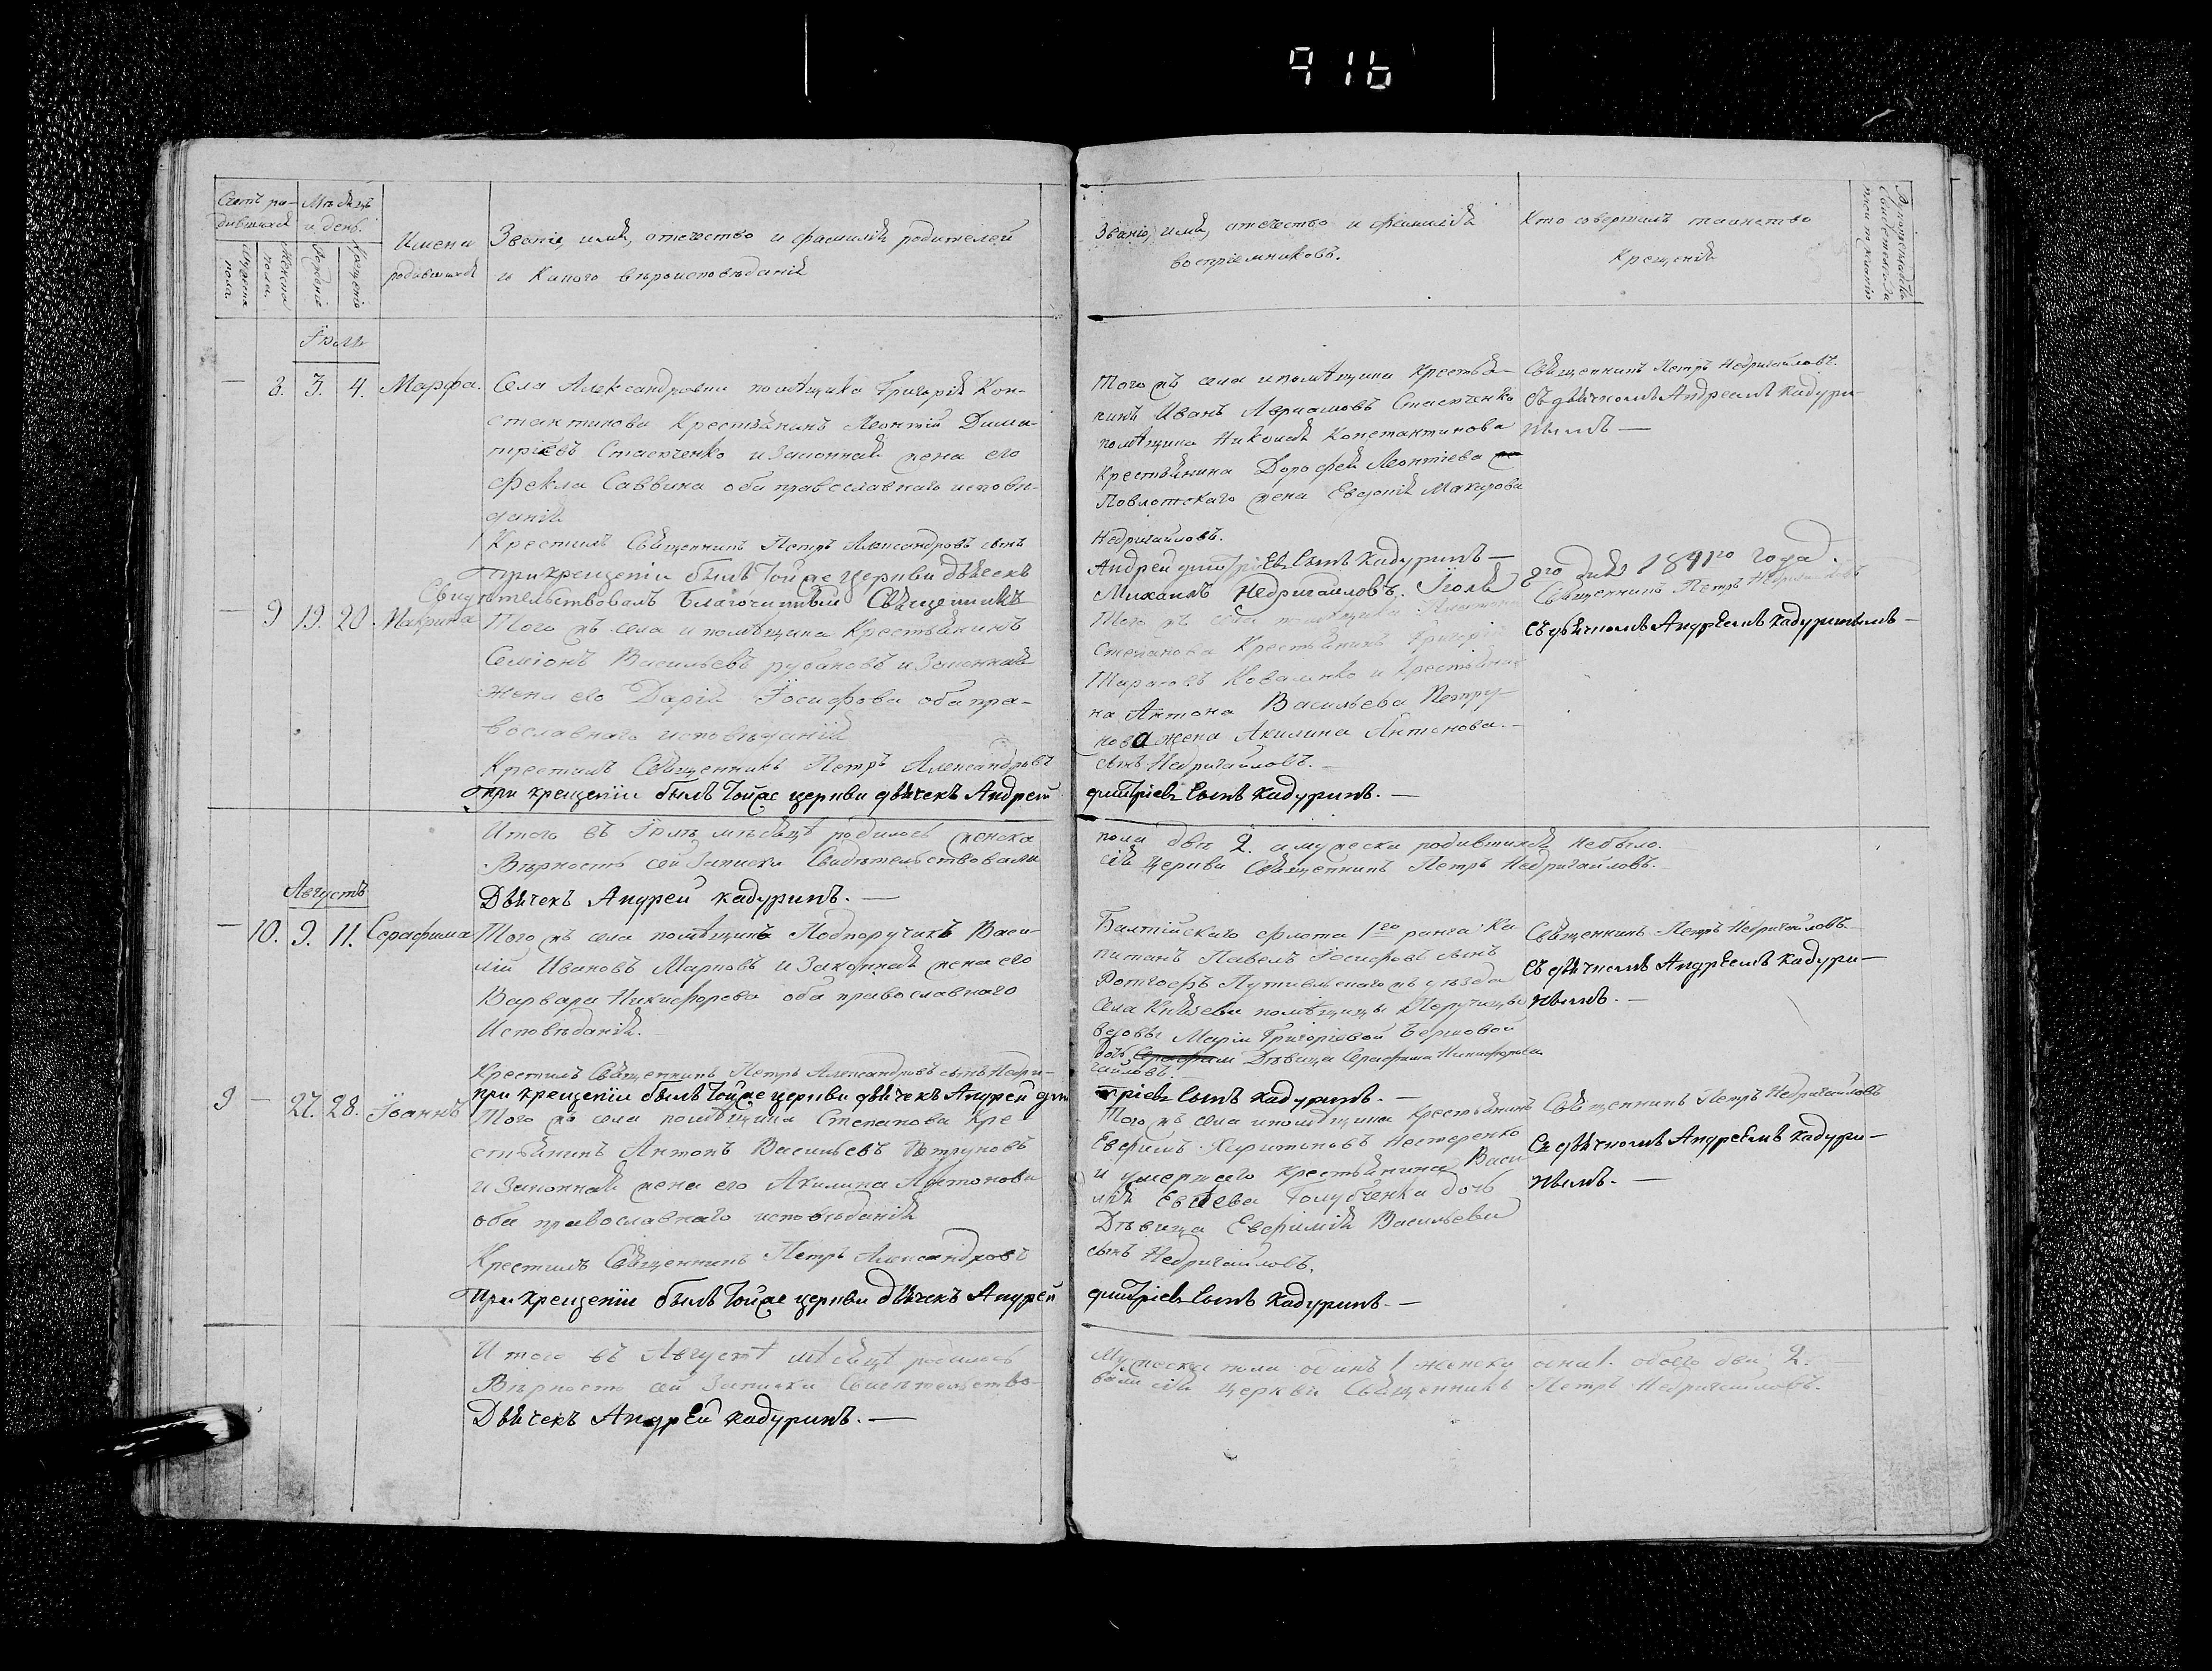 916
Счетъ ро-
дившихся
Мѣсяцъ
и день.
Мужеска
пола.
Женска
пола.
Рожденіе
Крещеніе
Имена
родившихся
Званіе, имя, отечество и фамилія родителей
и какого вѣроисповѣданія
Званіе, имя, отечество и фамилія
воспріемниковъ.
Кто совершалъ таинство
Крещенія
Іюль
— 8. 3. 4. Марфа.
Села Александровки помѣщика Григорія Кон-
стантинова Крестьянинъ Леонтій Дими-
тріевъ Стасенко и Законная жена его
Фекла Саввина оба православнаго исповѣ-
данія
Крестилъ Священникъ Петръ Александровъ сынъ
при крещеніи былъ тойже церкви дьячекъ
Свидѣтельствовалъ Благочинный Священникъ
— 9 19. 20 Макрина
Того жъ села и помѣщика Крестьянинъ
Семіонъ Васильевъ рубановъ и Законная
жена его Дарія Іосифова оба пра-
вославнаго исповѣданія
Крестилъ Священникъ Петръ Александровъ
при крещеніи былъ тойже церкви дьячекъ Андрей
Итого въ Іюлѣ мѣсяцѣ родилось женска
Вѣрность сей Записки Свидѣтельствовали
Дьячекъ Андрей кадуринъ. —
Августъ
— 10. 9. 11. Серафима
Того жъ села помѣщикъ Подпоручикъ Васи-
лій Ивановъ Марковъ и Законная жена его
Варвара Никифорова оба православнаго
Исповѣданія.
Крестилъ Священникъ Петръ Александровъ сынъ Недри-
при крещеніи былъ тойже церкви дьячекъ Андрей дми
9 — 27. 28. Іоаннъ
Того жъ села помѣщика Степанова Кре-
стьянинъ Антонъ Васильевъ Петруновъ
и Законная жена его Акилина Антонова
оба православнаго исповѣданія
Крестилъ Священникъ Петръ Александровъ
При крещеніи былъ тойже церкви дьячекъ Андрей
Итого въ Августѣ мѣсяцѣ родилось
Вѣрность сей Записки Свидѣтельство-
Дьячекъ Андрей кадуринъ. —
Того жъ села и помѣщика Крестья-
нинъ Иванъ Стасенко
помѣщика Николая Константинова
Крестьянина Дорофея Леонтіева
Повлотскаго жена Евдокія Макарова
Недригайловъ.
Андрей дмитріевъ сынъ кадуринъ —
Михаилъ Недригайловъ. Іюля
Того жъ села помѣщика
Степанова Крестьянинъ Григорій
Тарасовъ Коваленко и Крестьяни-
на Антона Васильева Петру-
нова жена Акилина Антонова. —
сынъ Недригайловъ. —
дмитріевъ сынъ кадуринъ. —
пола два 2. а мужеска родившихся небыло.
сей церкви Священникъ Петръ Недригайловъ.
Балтійскаго флота 1го ранга Ка
питанъ Павелъ Іосифовъ сынъ
Путивльскаго жъ уѣзда
Села Князева помѣщицы Поручицы
вдовы Маріи Григоріевой
дочь Дѣвица Серафима Никифорова
гайловъ.
тріевъ сынъ кадуринъ. —
Того жъ села и помѣщика Крестьянинъ
Евфимъ Харитоновъ Нестеренко
и умершаго крестьянина Васи
лія Евсѣева Голубченка дочь
Дѣвица Евфимія Васильева
сынъ Недригайловъ.
дмитріевъ сынъ кадуринъ. —
Мужеска пола одинъ 1 женска одна 1. обоего два 2.
вали сей церкви Священникъ Петръ Недригайловъ.
Священникъ Петръ Недригайловъ.
Съ дьячкомъ Андреемъ кадури-
нымъ —
8го дня 1841го года.
Священникъ Петръ Недригайловъ
Съ дьячкомъ Андреемъ кадуринымъ —
Священникъ Петръ Недригайловъ.
Съ дьячкомъ Андреемъ кадури-
нымъ. —
Священникъ Петръ Недригайловъ
Съ дьячкомъ Андреемъ кадури-
нымъ. —